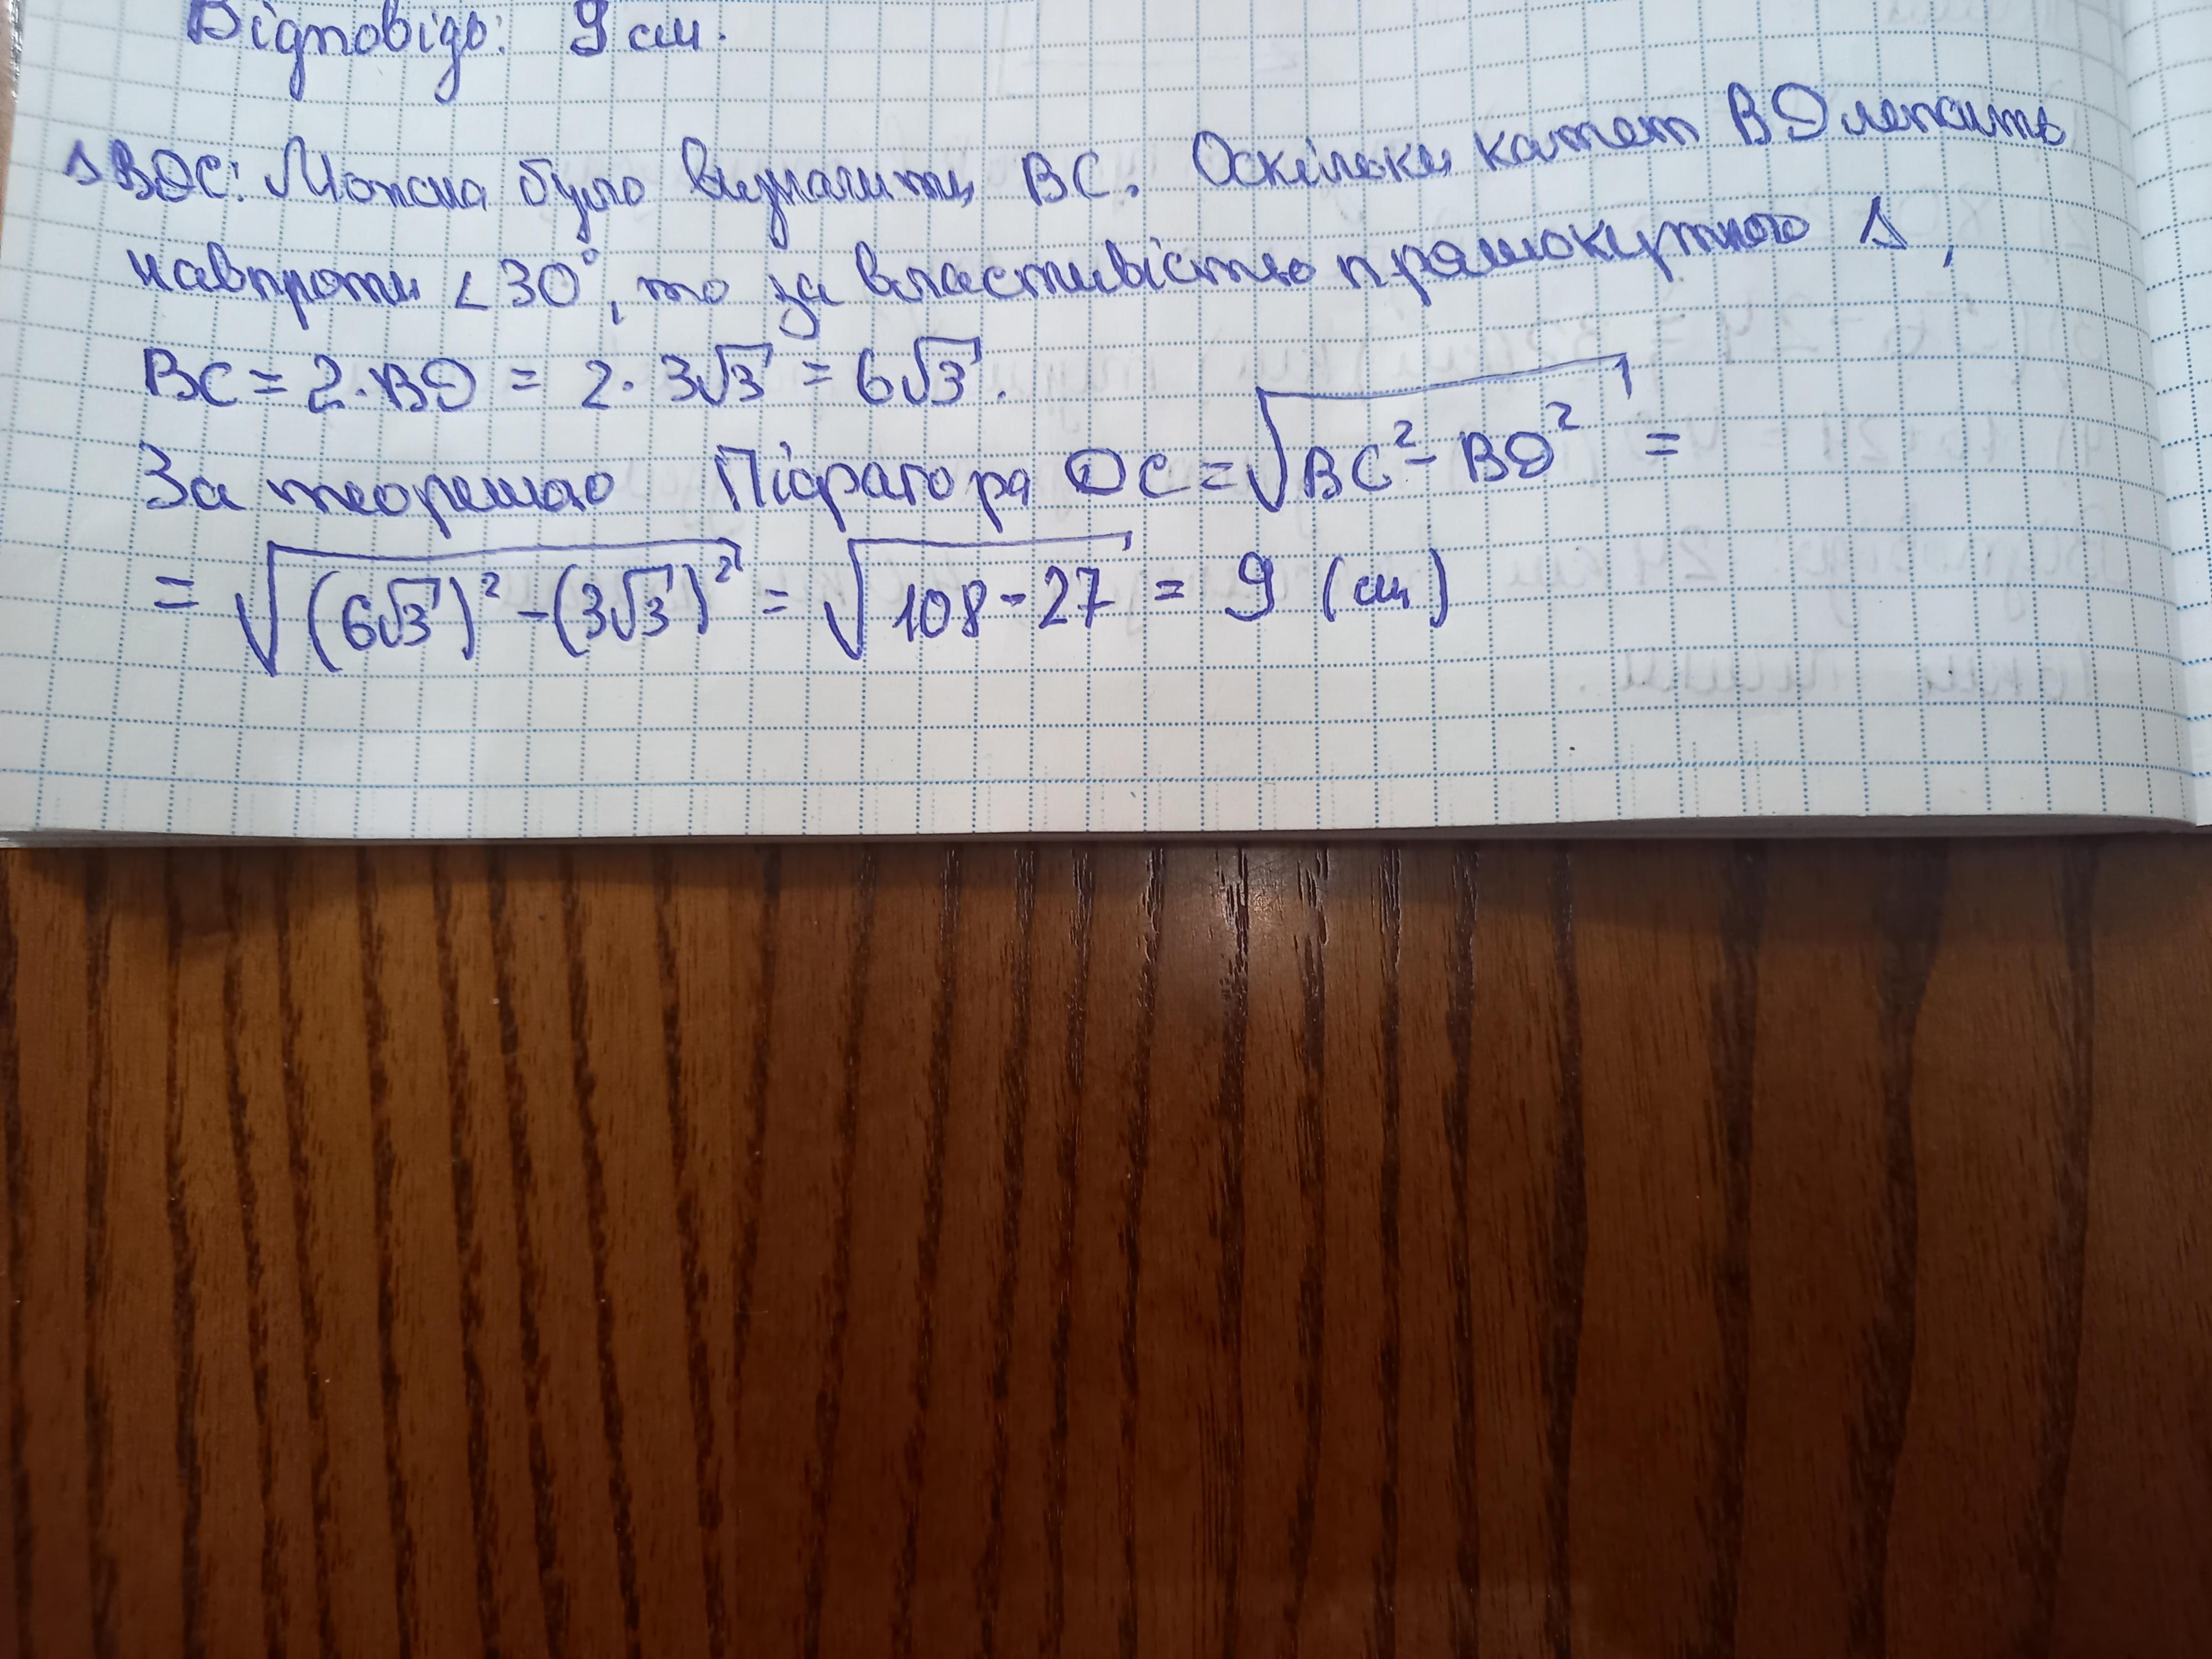 Відповідь: 9 см.
Δ BDC: Можна було визначити BC. Оскільки катет BD лежить
навпроти ∠30°, то за властивістю прямокутного Δ,
BC = 2·BD = 2·3√3 = 6√3.
За теоремою Піфагора DC = √(BC² - BD²) =
= √((6√3)² - (3√3)²) = √(108-27) = 9 (см)